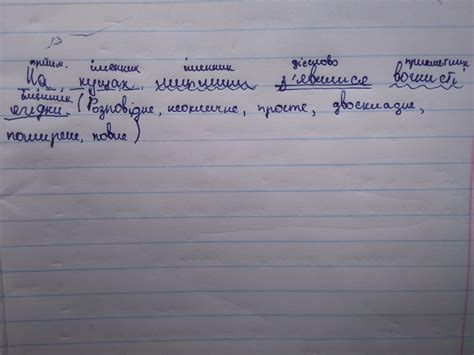 прийм. іменник іменник дієслово прикметник
На кущах шипшини з'явилися вогнисті
іменник
ягідки. (Розповідне, неокличне, просте, двоскладне,
поширене, повне)